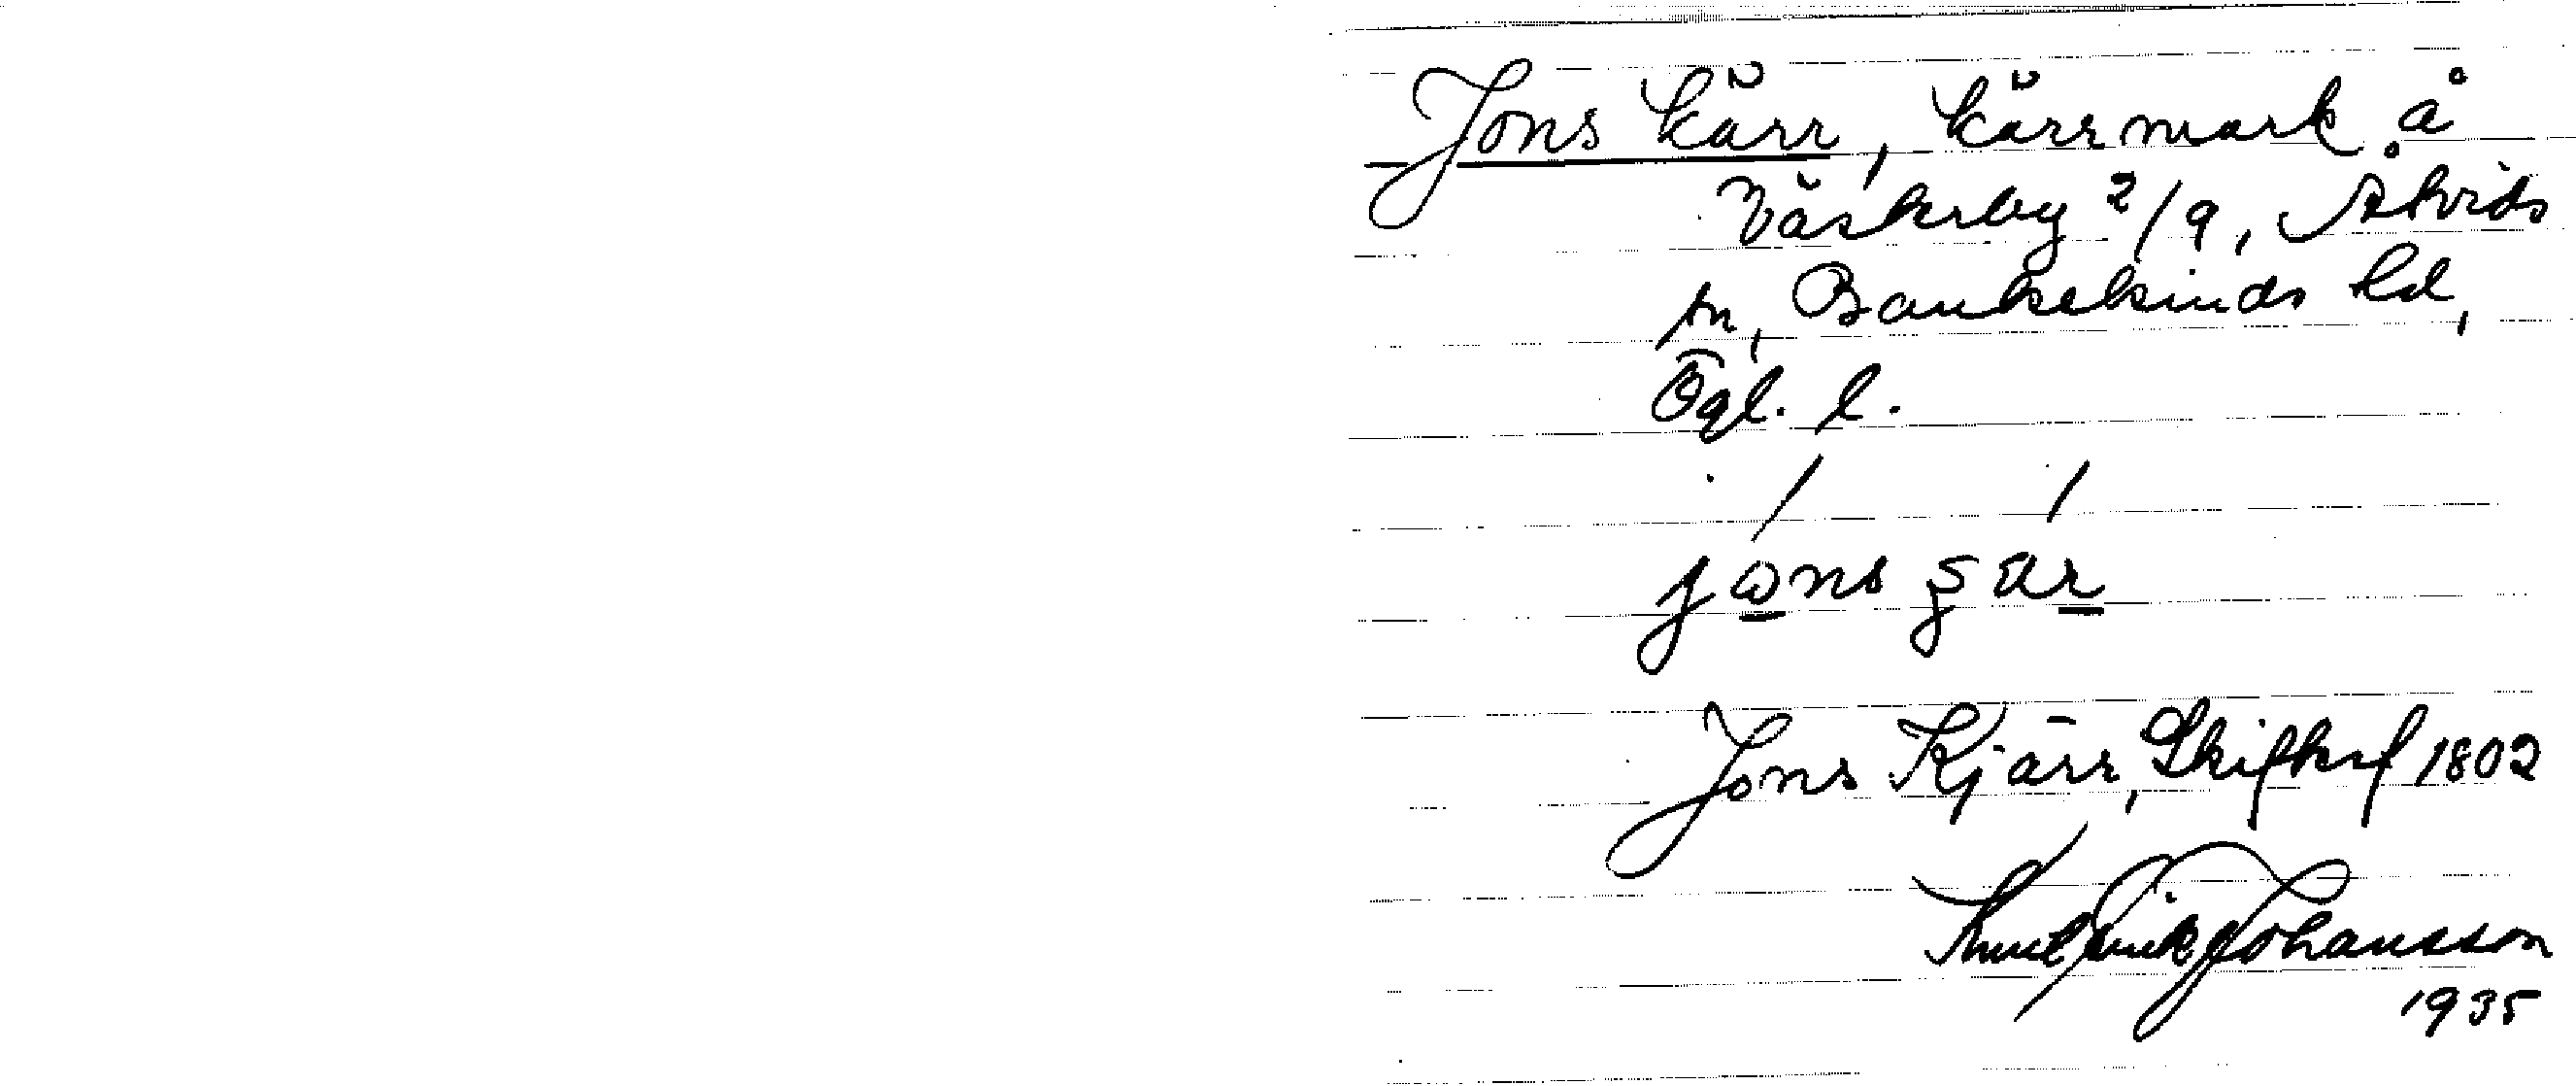 Jons kärr, kärrmark å
Västerby 2/9, Åtvids
sn, Bankekinds hd,
Ögl. l.
Jons Kjärr, Skifteskf 1802
Knut Erik Johansson
1935